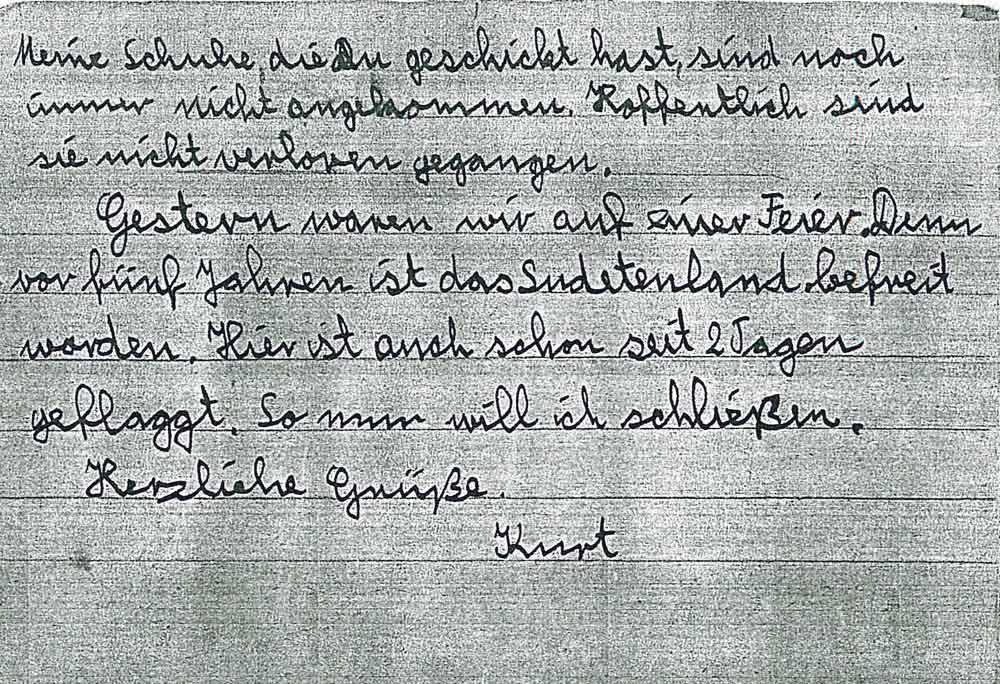 Meine Schuhe, die Du geschickt hast, sind noch
immer nicht angekommen. Hoffentlich sind
sie nicht verloren gegangen.
Gestern waren wir auf einer Feier. Denn
vor fünf Jahren ist das Sudetenland befreit
worden. Hier ist auch schon seit 2 Tagen
geflaggt. So nun will ich schließen.
Herzliche Grüße.
Kurt